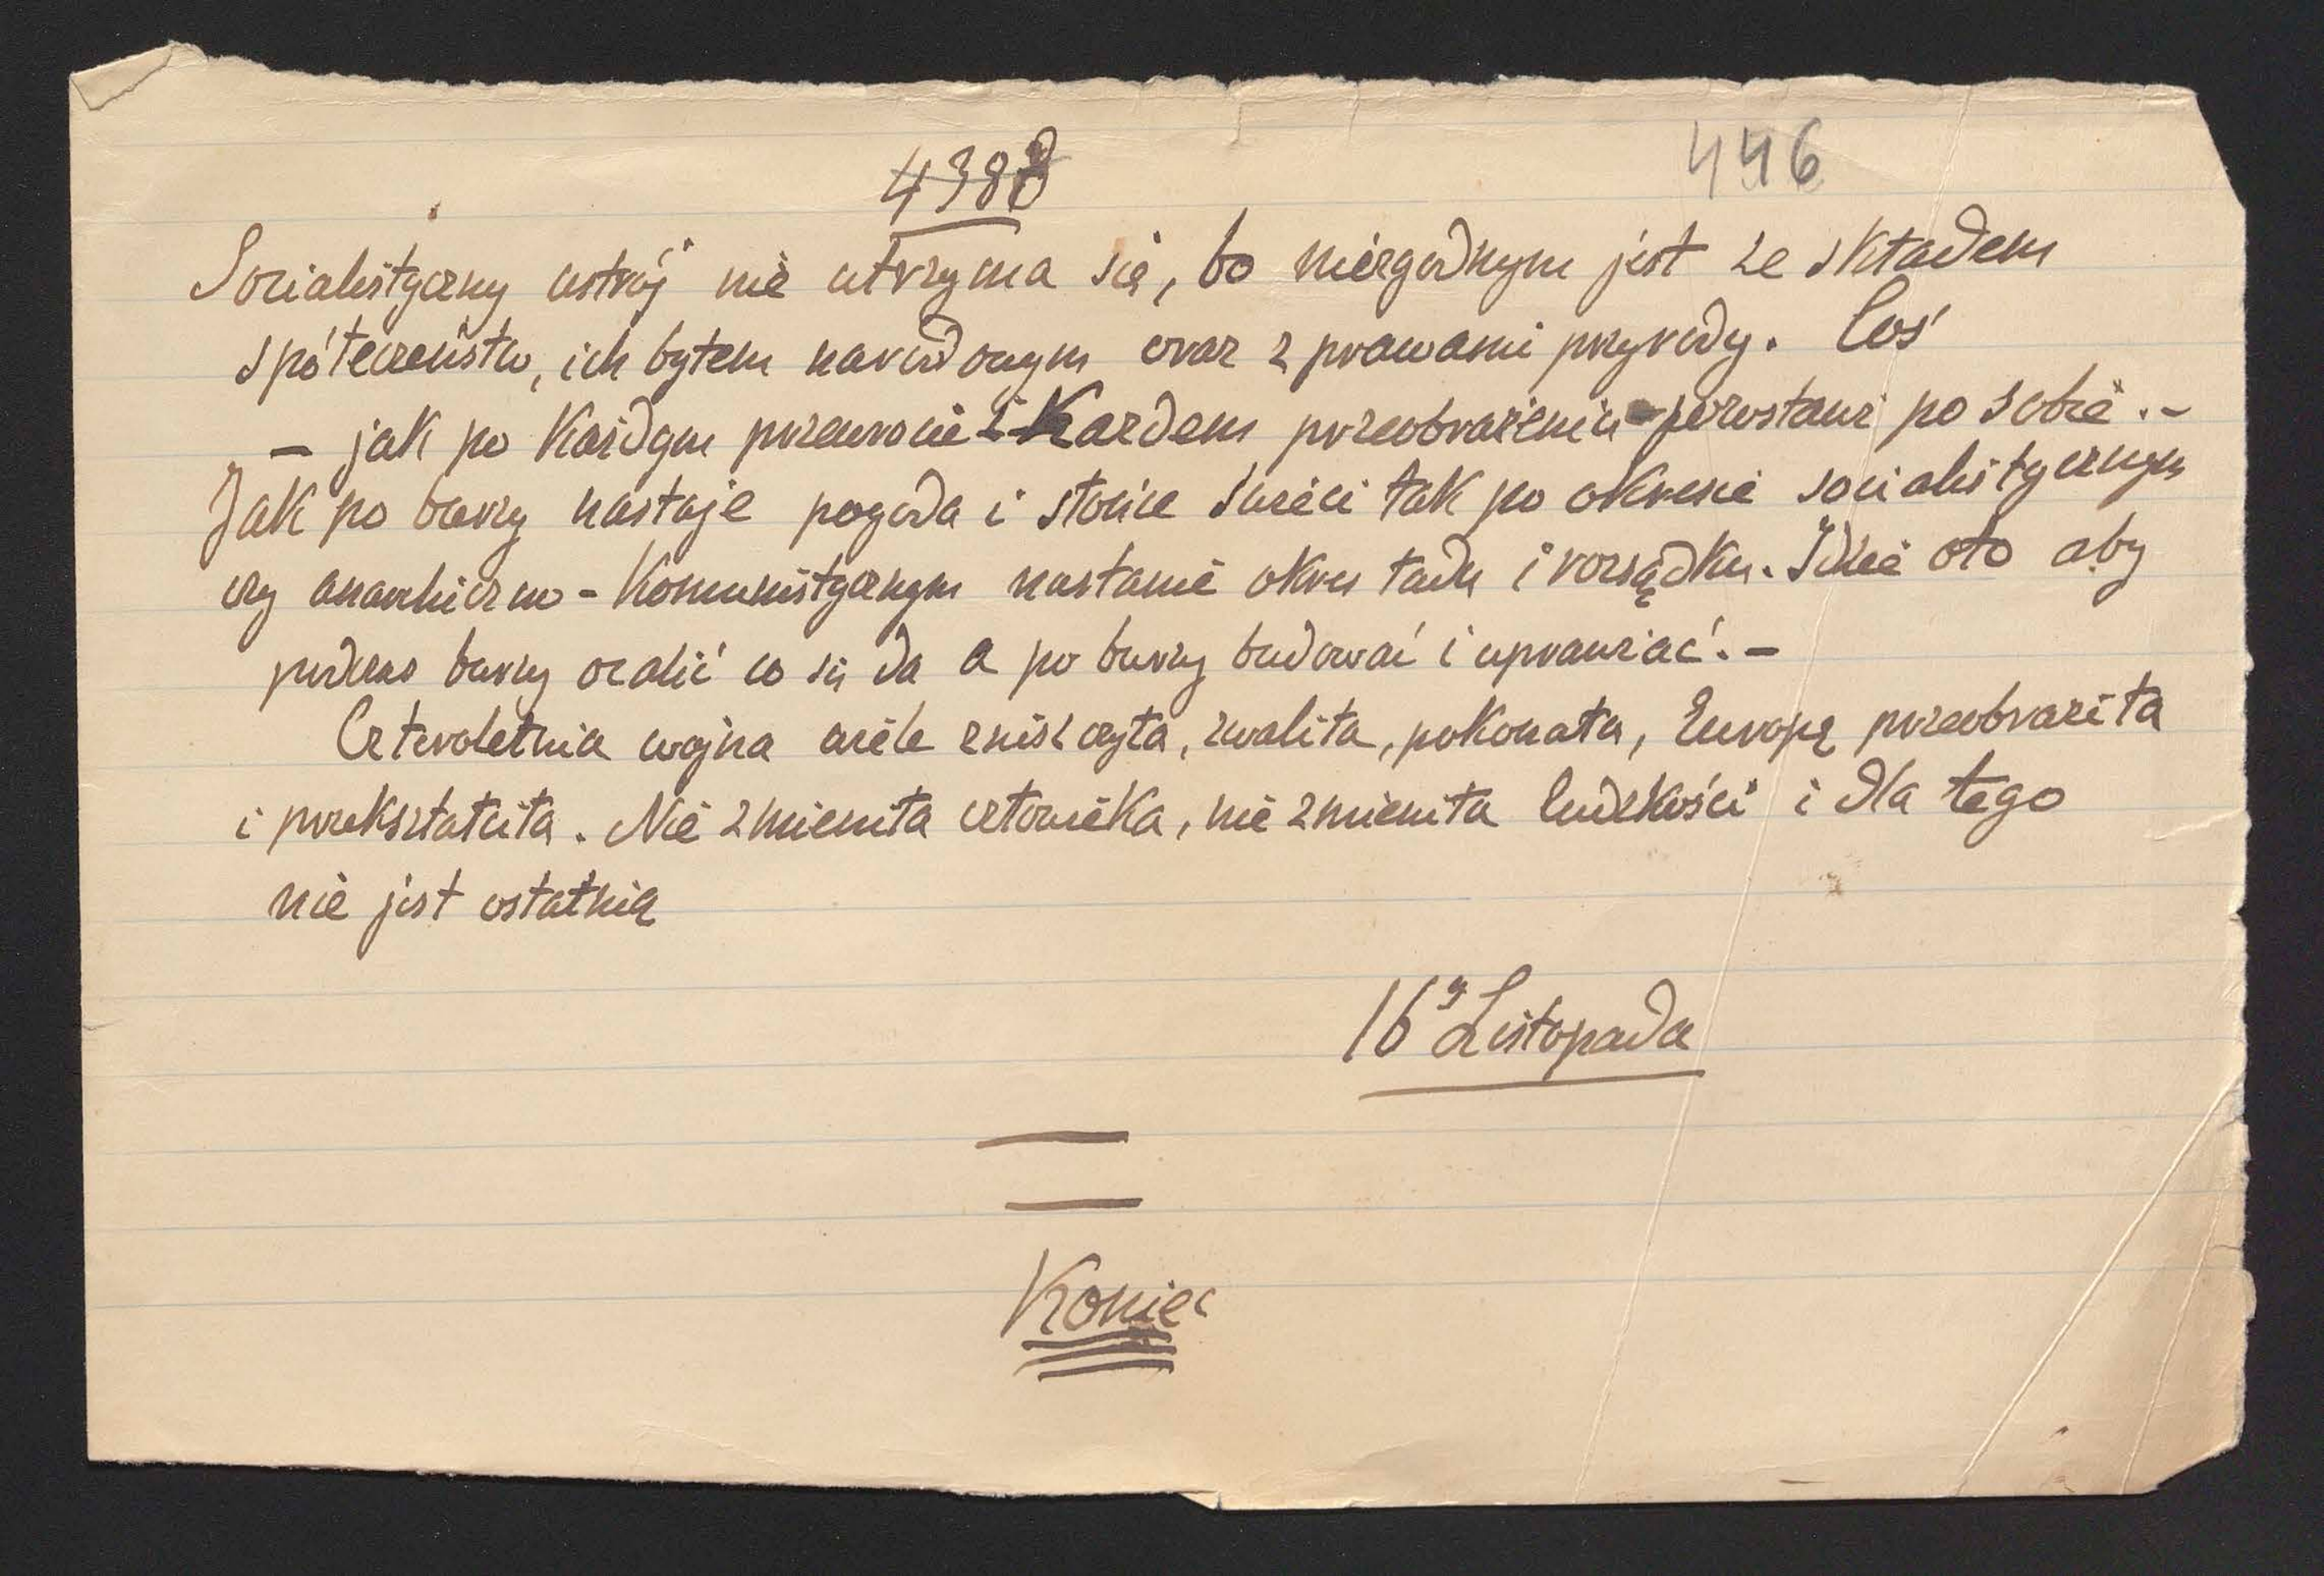 446
Socialistyczny ustrój nie utrzyma się, bo niezgodnym jest ze składem
spółeczeństw, ich bytem narodowym oraz z prawami przyrody. Coś
– jak po każdym przewrocie i każdem przeobrażeniu – pozostawi po sobie. –
Jak po burzy nastaje pogoda i słońce świeci tak po okresie socialistycznym
czy anarchiczno - komunistycznym nastanie okres ładu i rozsądku. Idzie oto aby
podczas burzy ocalić co się da a po burzy budować i uprawiać. –
Czteroletnia wojna wiele zniszczyła, zwaliła, pokonała, Europę przeobraziła
i przekształciła. Nie zmieniła człowieka, nie zmieniła ludzkości i dla tego
nie jest ostatnią
16go Listopada
Koniec